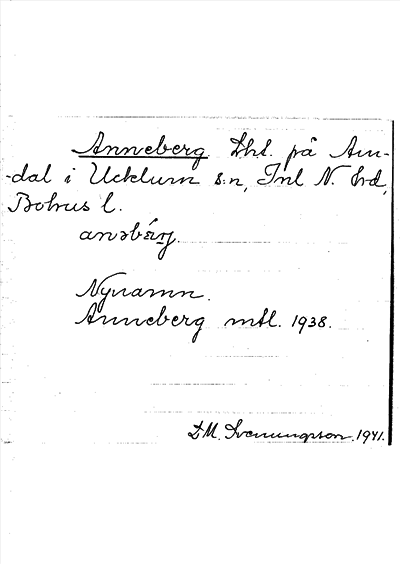 Anneberg. Lht. på Am-
-dal i Ucklum s:n, Inl N. hd,
Bohus l.
anəbærj.
Nynamn.
Anneberg mtl. 1938.
D.M. Svenungsson. 1941.